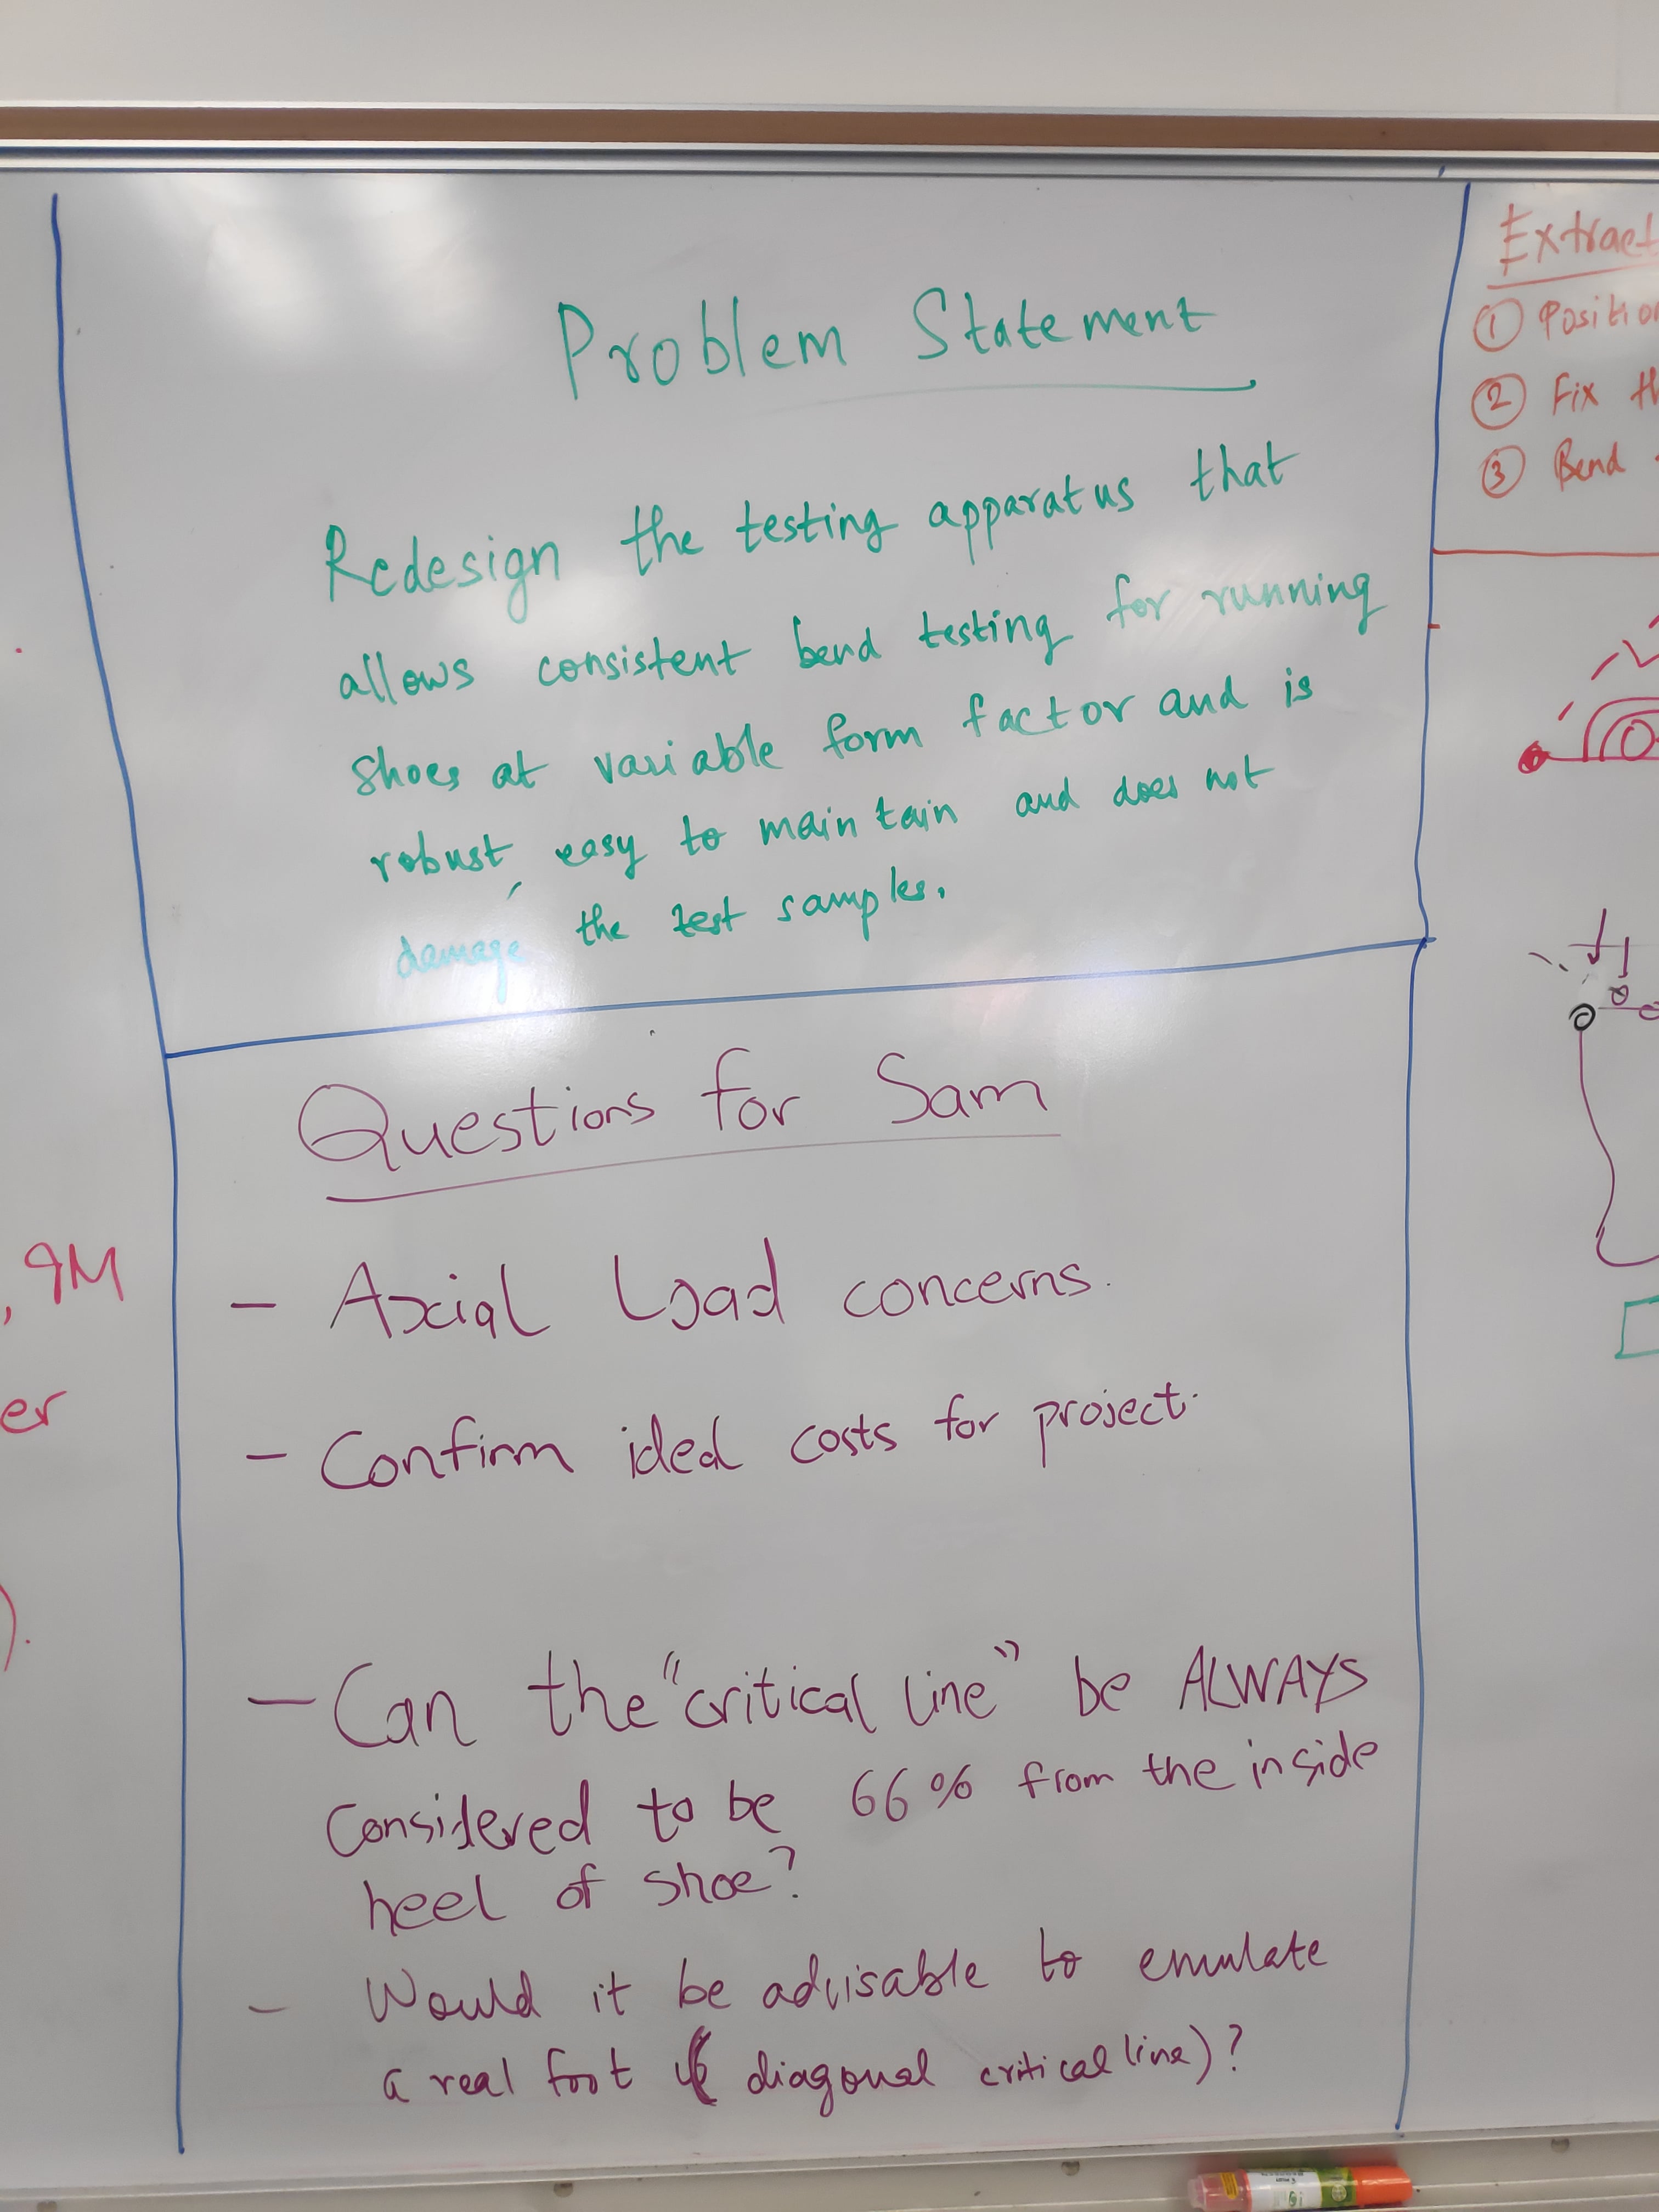 Problem Statement
Redesign the testing apparatus that
allows consistent bend testing for running
shoes at variable form factor and is
robust, easy to maintain and does not
damage the test samples.
Questions for Sam
- Axial Load concerns.
- Confirm ideal costs for project.
- Can the "critical line" be ALWAYS
considered to be 66% from the inside
heel of shoe?
- Would it be advisable to emulate
a real foot ( diagonal critical line)?
Extract
① Position
② Fix th
③ Bend
, 9M
er
).